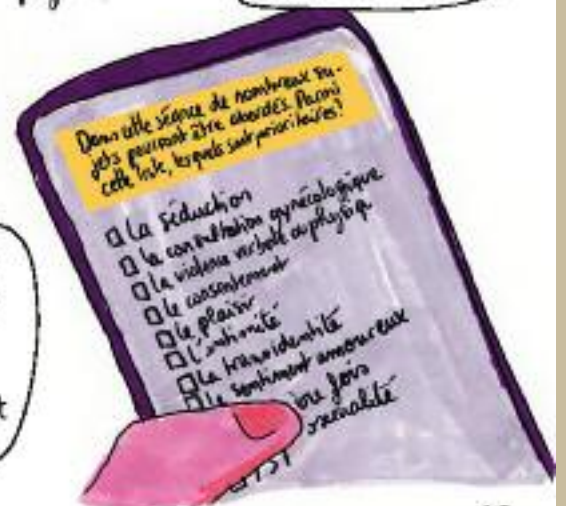 Dans cette séance de nombreux su-
jets pourront être abordés. Parmi
cette liste, lesquels sont prioritaires?
La séduction
La consultation gynécologique
La violence verbale ou physiq
Le consentement
Le plaisir
L'intimité
La transidentité
Le sentiment amoureux
fois
t